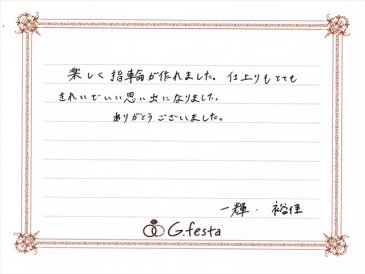 楽しく指輪が作れました。仕上りもとても
きれいでいい思い出になりました。
ありがとうございました。
一輝・裕佳
G.festa